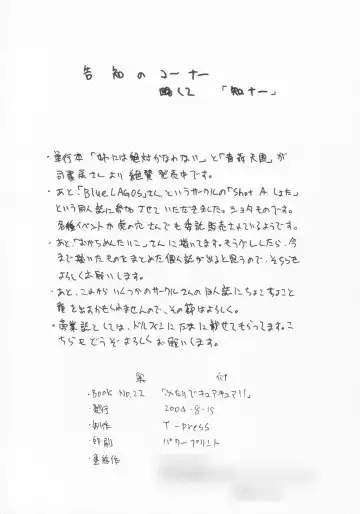 告知のコーナー
略して 「知ナー」
・単行本「姉には絶対かなわない」と「青荷天国」が
司書房さんより絶賛発売中です。
・あと、「BlueLAGOS」さん、というサークルの「Shot A しょた」
という同人誌に参加させていただきました。ショタものです。
各種イベントか虎の穴さんでも委託販売されているようです。
・あと「おかちめんたいこ」さんに描いてます。もう少ししたら、今
まで描いたものをまとめた個人誌が出ると思うので、そちらも
よろしくお願いします。
・あと、これからいくつかのサークルさんの同人誌にちょこちょこと
顔を出すかもしれませんので、その節はよろしく。
・商業誌としては、ドルフィンにたまに載せてもらってます。こ
ちらもどうぞよろしくお願いします。
奥 付
・Book No.22 「ふたりでキュアキュア!!」
・発行 2004-8-15
・制作 T-press
・印刷 パワープリント